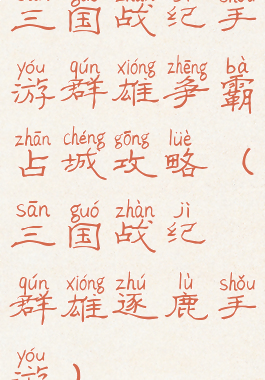 三国战纪手
yóu qún xióng zhēng bà
游群雄争霸
zhān chéng gōng lüè
占城攻略（
sān guó zhàn jì
三国战纪
qún xióng zhú lù shǒu
群雄逐鹿手
yóu
游）